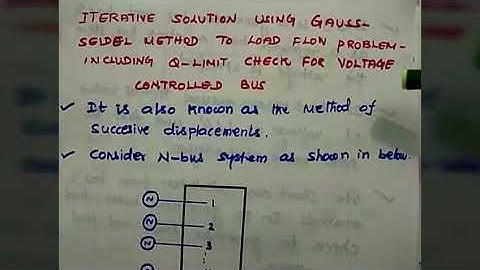 ITERATIVE SOLUTION USING GAUSS-
SEIDEL METHOD TO LOAD FLOW PROBLEM-
INCLUDING Q-LIMIT CHECK FOR VOLTAGE
CONTROLLED BUS
✓ It is also known as the Method of
succesive displacements.
✓ Consider N-bus system as shown in below.
N 1
N 2
N 3
N